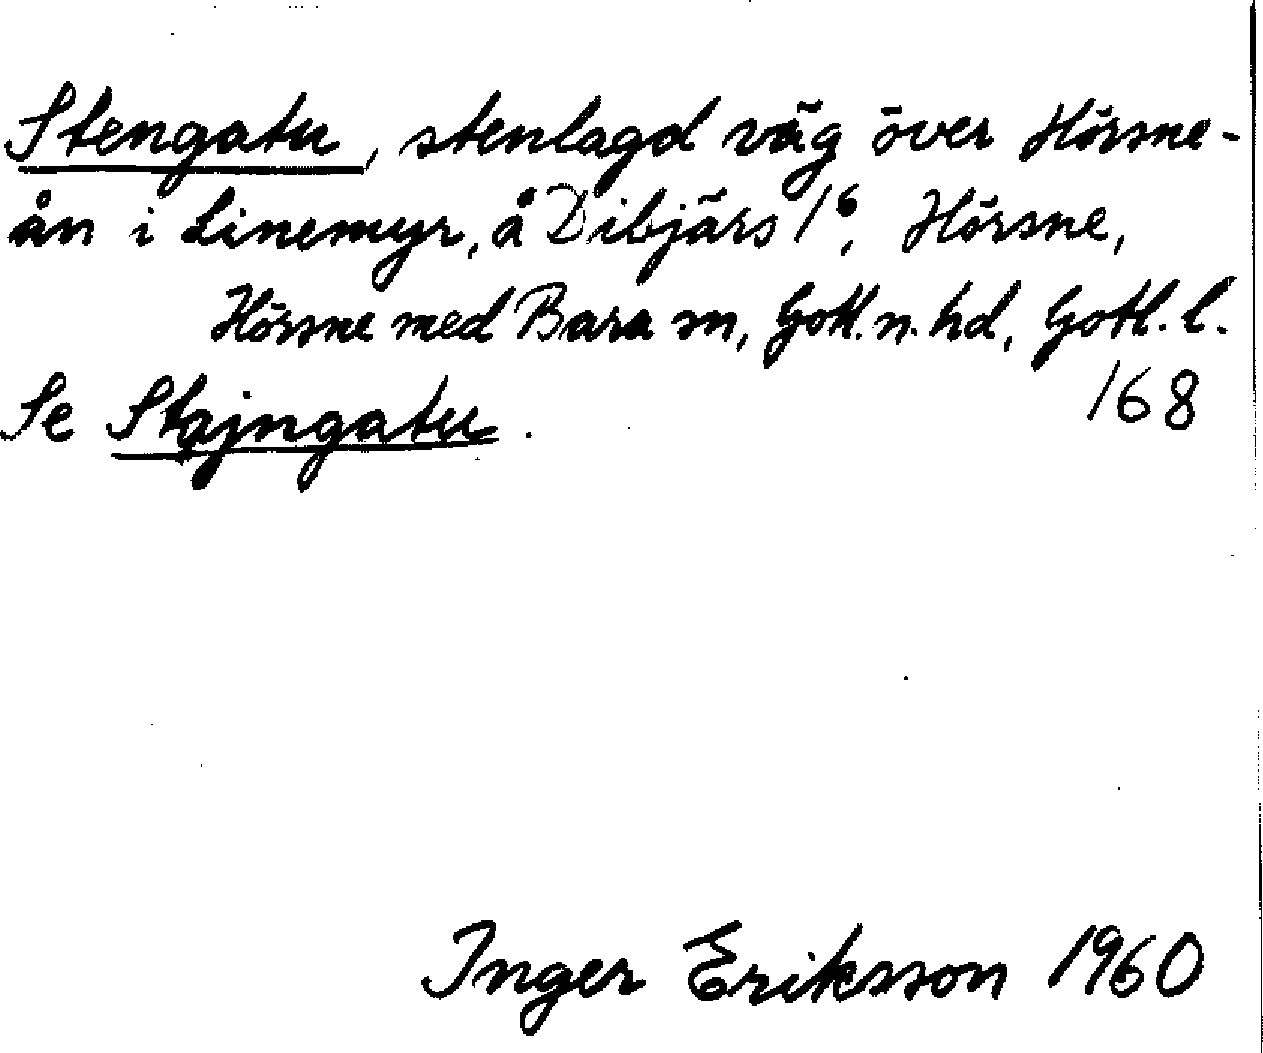 Stengatu, stenlagd väg över Hörsne-
ån i Linemyr, å Dibjärs 1⁶, Hörsne,
Hörsne med Bara sn, Gotl. n. hd, Gotl. l.
Se Stajngatu. 168
Inger Eriksson 1960